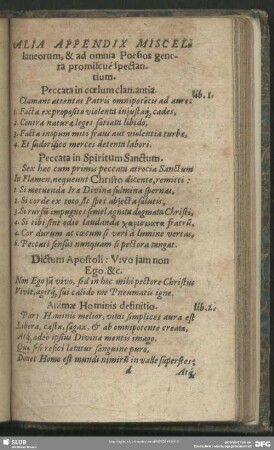 ALIA APPENDIX MISCEL-
laneorum, & ad omnia Poesios gene-
ra promiscuè spectan-
tium.
Peccata in cœlum clamantia.
lib. 1.
Clamant attentas Patris omnipotētis ad aures
1. Facta ex proposito violenta injustaq́; cædes,
2. Contra naturæ leges satiata libido,
3. Facta inopum miti fraus aut violentia turbæ,
4. Et sudorifico merces detenta labori.
Peccata in Spiritum Sanctum.
Sex hæc cum primis peccata atrocia Sanctum
In Flamen, nequeunt Christo dicente, remitti:
1. Si motuenda Ira Divina fulmina spernas,
2. Si corde ex toto sit spes abjecta salutis,
3. Si rursū impugnes semel agnita dogmata Christi,
4. Si tibi sint odio laudanda fratrū,
5. Cor durum at cæcum si veri à lumine vertas,
6. Peccati sensus nunquam si pectora tangat.
Dictum Apostoli: Vivo jam non
Ego. &c.
Non Ego sū vivo, sed in hoc mihi pectore Christus
Vivit, agitq́;, suo calido me Pneumatis igne.
Animæ Hominis definitio.
lib. 2.
Pars Hominis melior, vitæ simplices aura est
Libera, casta, sagax, & ab omnipotente creata,
Atq́;, adeo ipsius Divinæ mentis imago.
Quæ sese refici lætatur sanguine puro,
Donec Homo est mundi nimirū in valle superstes:
Atq́;
SLUB